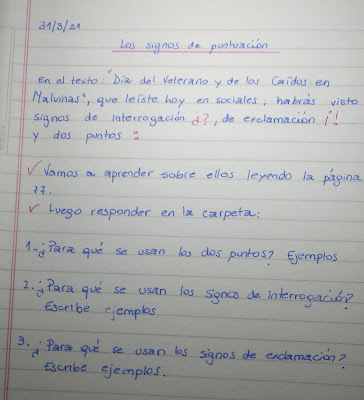 31/3/21
Los signos de puntuación
En el texto: "Dia del Veterano y de los Caídos en
Malvinas", que leíste hoy en sociales, habrás visto
signos de interrogación ¿?, de exclamación ¡!
y dos puntos :
✓ Vamos a aprender sobre ellos leyendo la página
77.
✓ Luego responder en la carpeta:
1-¿Para qué se usan los dos puntos? Ejemplos
2.¿Para qué se usan los signos de interrogación?
Escribe ejemplos
3.¿Para qué se usan los signos de exclamación?
Escribe ejemplos.